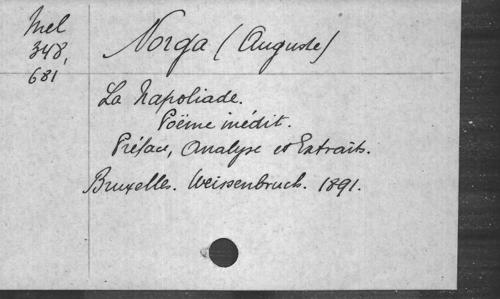 Mel
348,
681
Norga (Auguste)
La Napoliade.
Poëme inédit.
Préface, Analyse et Extraits.
Bruxelles. Weissenbruch. 1891.